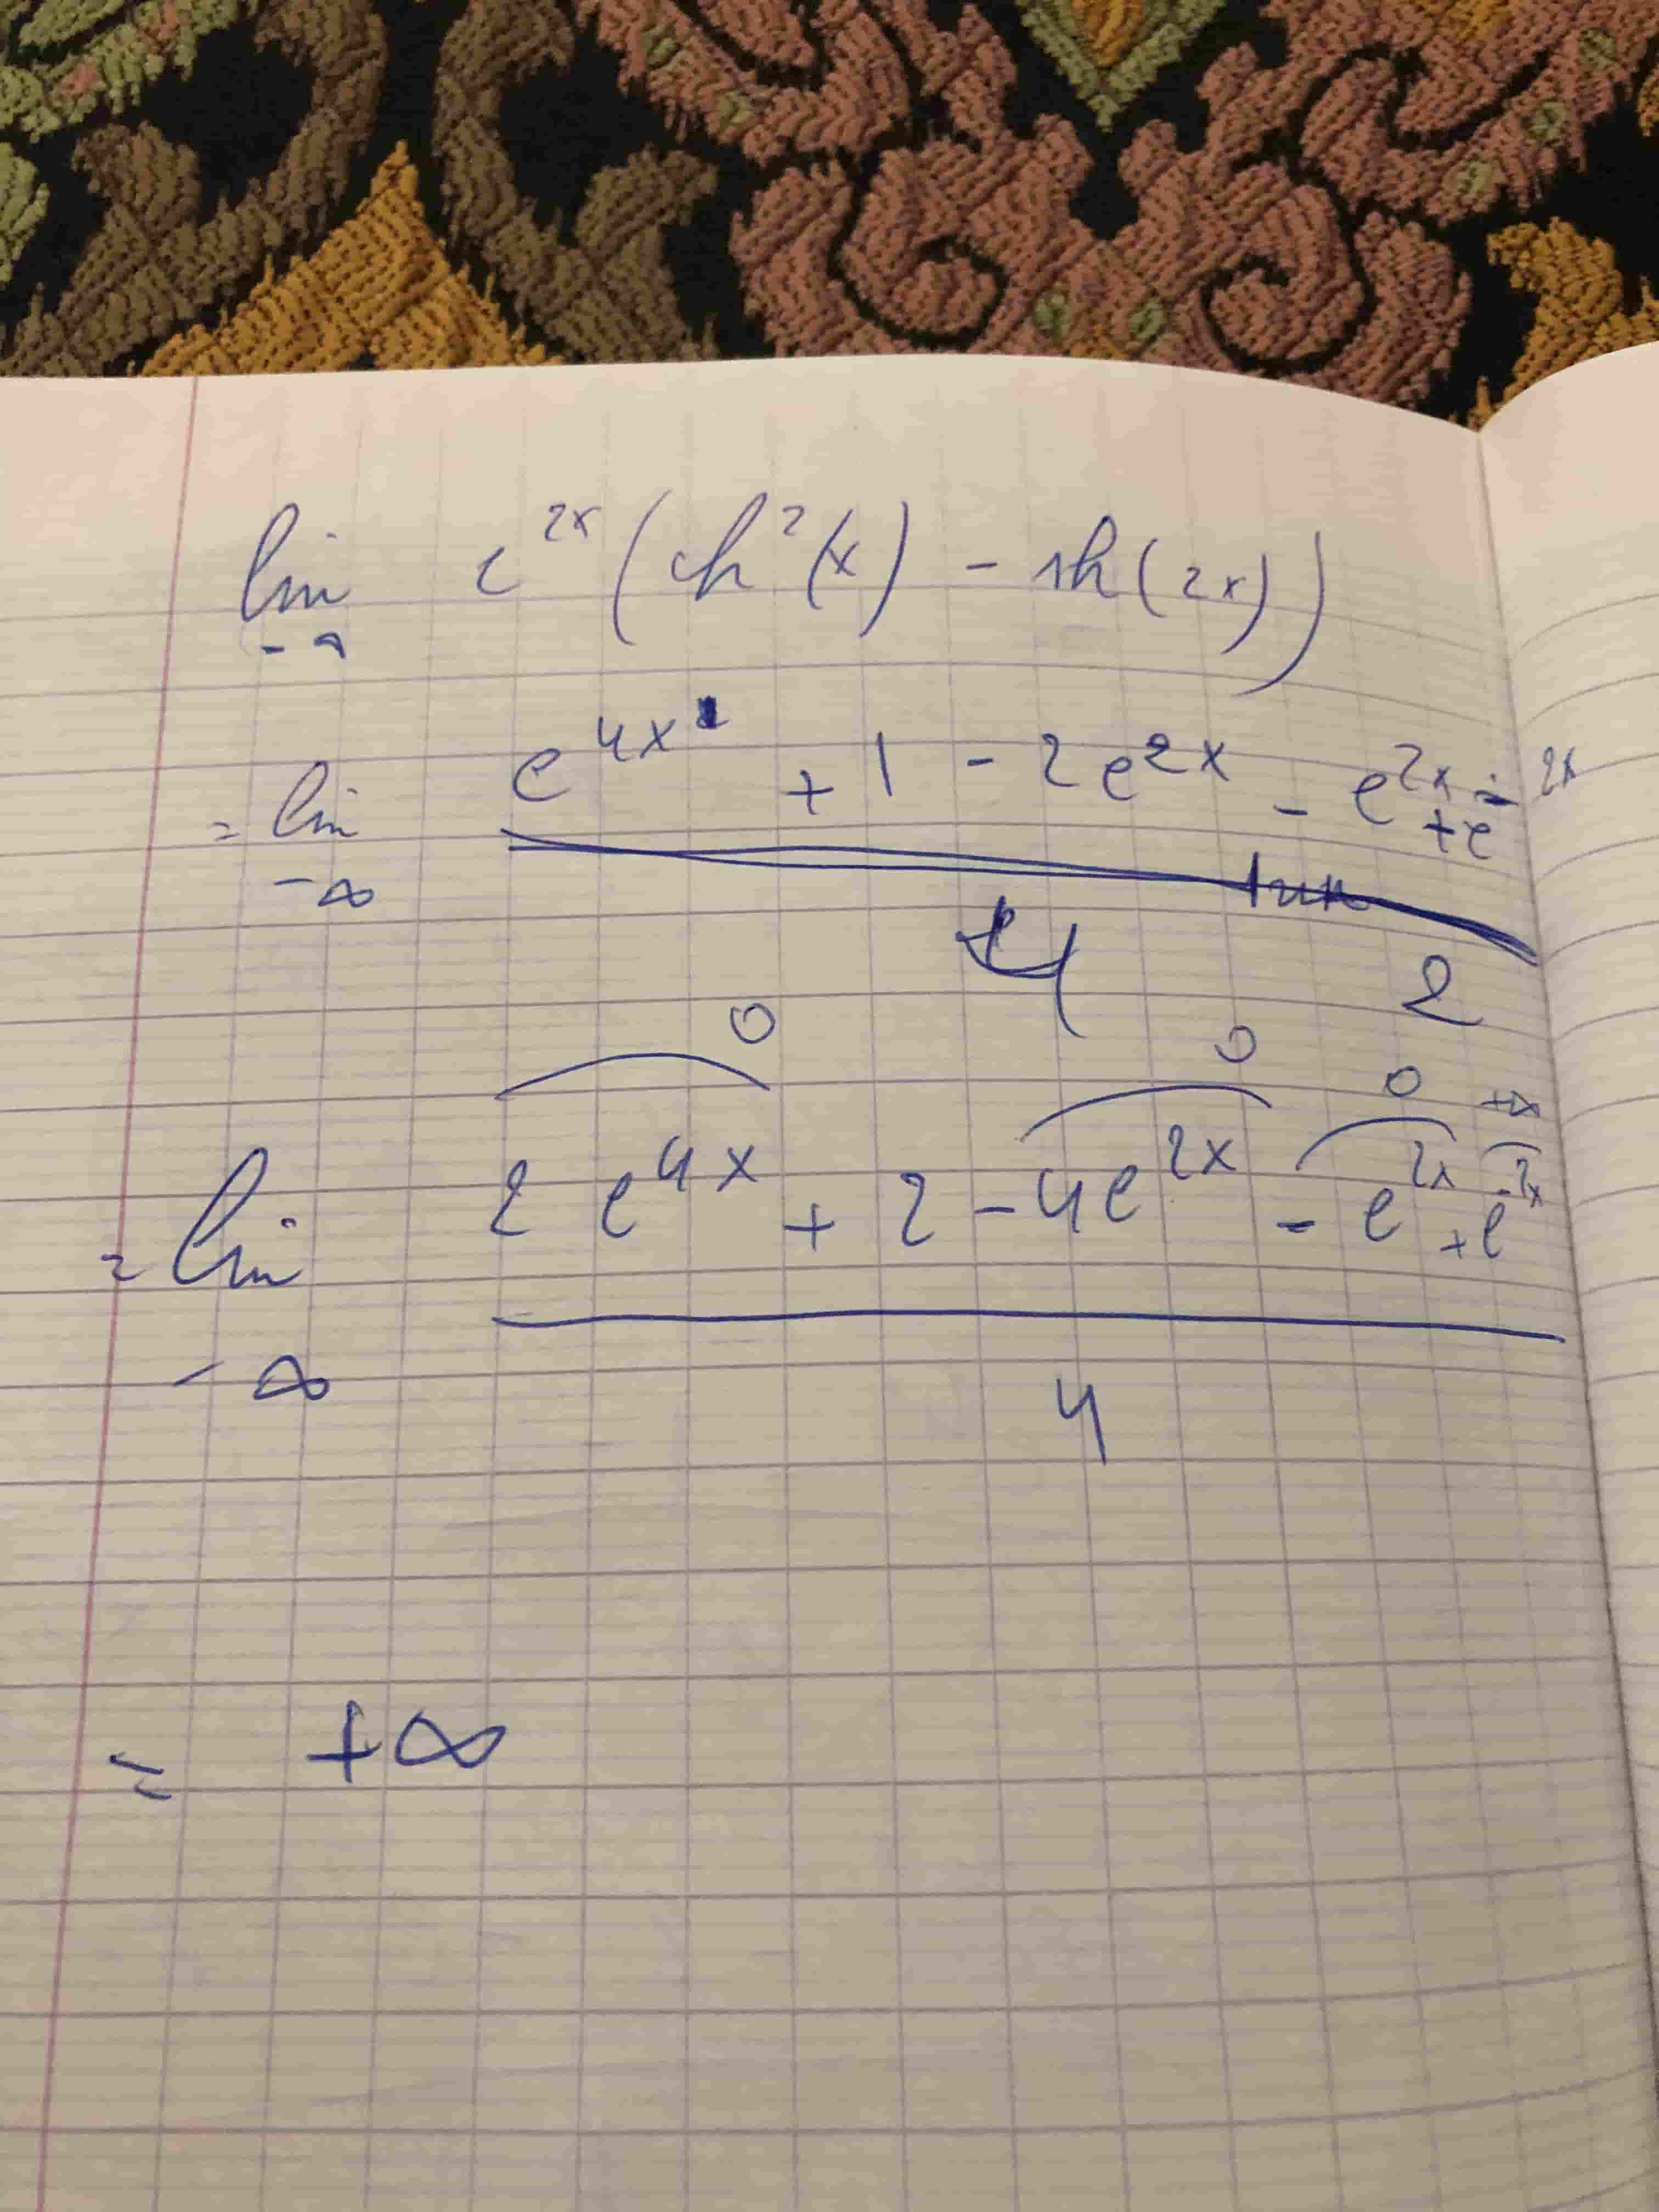 lim e^{2x} (ch²(x) - sh(2x))
-∞
= lim e^{4x} + 1 - 2e^{2x} - e^{2x} + e^{-2x}
-∞
4 2
0 0 0 +∞
= lim 2 e^{4x} + 2 - 4e^{2x} - e^{2x} + e^{-2x}
-∞
4
= +∞